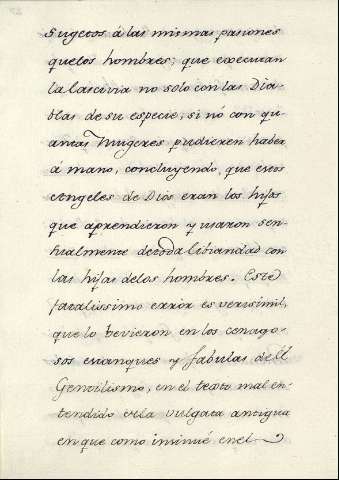 Sugetos á las mismas pasiones
quelos hombres; que executan
la lascivia no solo con las Dia-
blas de su especie, si nó con qu-
antas Mugeres pudieren haber
á mano, concluyendo, que esos
Angeles de Dios eran los hijos
que aprendieron y usaron sen-
sualmente detoda libiandad con
las hijas delos hombres. Este
fatalissimo error es verisimil,
que lo bevieron en los cenago-
sos estanques y fabulas del
Gentilismo, en el texto mal en-
tendido dela vulgata antigua
en que como insinué en el